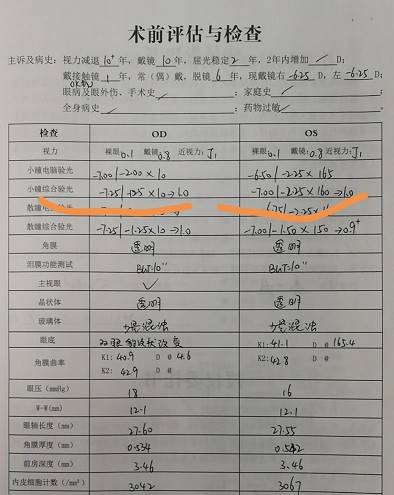 术前评估与检查
主诉及病史：视力减退 10⁺ 年，戴镜 10 年，屈光稳定 2 年，2年内增加 / D；
戴接触镜 1 年，常（偶）戴，脱镜 6 年，现戴镜右 -6.25 D，左 -6.25 D；
眼病及眼外伤、手术史 / ；家庭史 / ；
全身病史 / ；药物过敏 /
检查 OD OS
视力 裸眼：0.1 戴镜：0.8 近视力：J1 裸眼：0.1 戴镜：0.8 近视力：J1
小瞳电脑验光 -7.00/-2.00×10 -6.50/-2.25×165
小瞳综合验光 -7.25/ ×10→1.0 -7.00/-2.25×160→1.0
散瞳电脑验光
散瞳综合验光 -7.25/-1.25×10→1.0 -7.00/-1.50×150→0.9⁺
角膜 透明 透明
泪膜功能测试 BUT:10'' BUT:10''
主视眼 ✓
晶状体 透明 透明
玻璃体 混浊 混浊
眼底 双眼 改变 K1: 41.1 D @ 165.4
角膜曲率 K1: 40.9 D @ 4.6 K2: 42.8 D @
K2: 42.9 D @
眼压（mmHg） 18 16
W-W(mm) 12.1 12.1
眼轴长度（mm） 27.60 27.55
角膜厚度（mm） 0.534 0.542
前房深度（mm） 3.46 3.46
内皮细胞计数（/mm²） 3042 3067